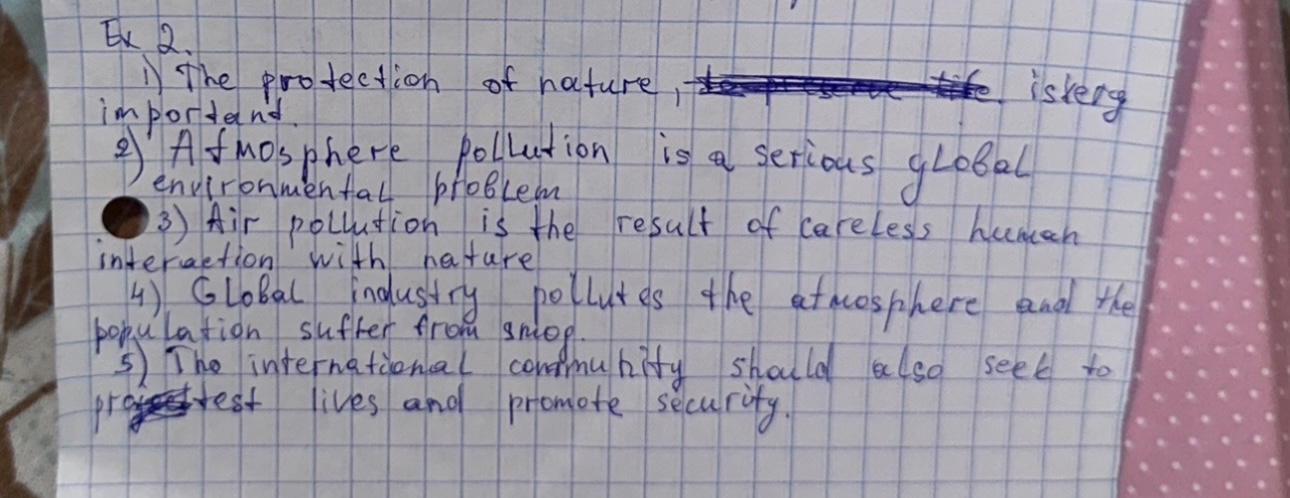 Ex 2.
1) The protection of nature, is very
importand.
2) Atmosphere pollution is a serious global
environmental problem
3) Air pollution is the result of careless human
interaction with nature
4) Global industry pollutes the atmosphere and the
population suffer from smog.
5) The international community should also seek to
protest lives and promote security.